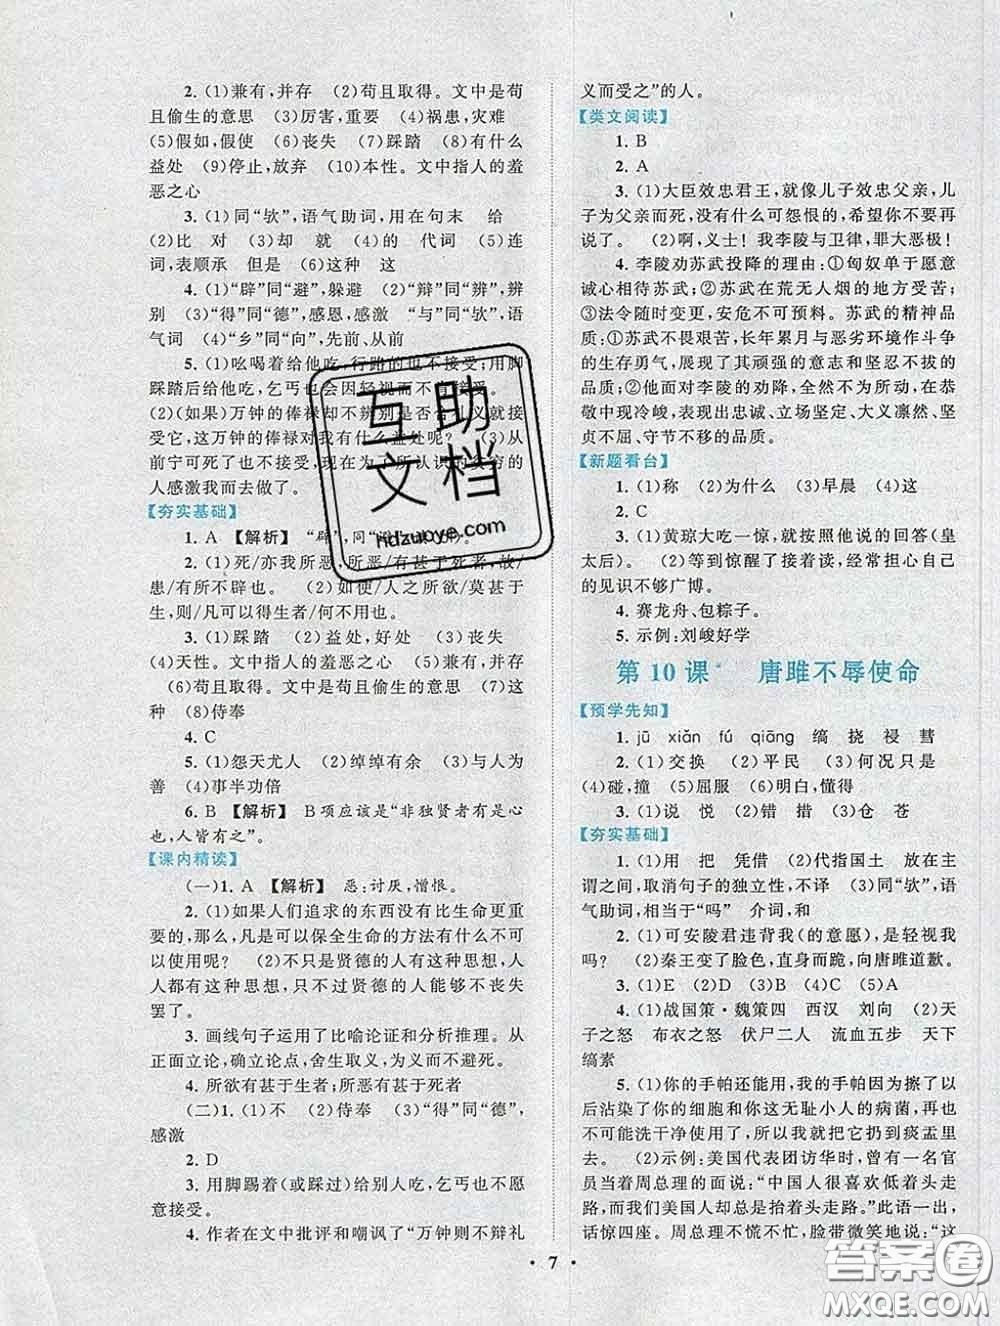 2. (1)兼有,并存 (2)苟且取得。文中是苟
且偷生的意思 (3)厉害,重要 (4)祸患,灾难
(5)假如,假使 (6)丧失 (7)踩踏 (8)有什么
益处 (9)停止,放弃 (10)本性。文中指人的羞
恶之心
3. (1)同“欤”,语气助词,用在句末 给
(2)比 对 (3)却 就 (4)的 代词 (5)连
词,表顺承 但是 (6)这种 这
4. (1)“辟”同“避”,躲避 (2)“辩”同“辨”,辨
别 (3)“得”同“德”,感恩,感激 “与”同“欤”,语
气词 (4)“乡”同“向”,先前,从前
5. (1)吆喝着给他吃,行路的也不接受。用脚
踩踏后给他吃,乞丐也会因轻视而不肯接受。
(2)(如果)万钟的俸禄却不辨别是否合礼义就接
受它,这万钟的俸禄对我有什么益处呢? (3)从
前宁可死了也不接受,现在为了所认识的贫穷的
人感激我而去做了。
【夯实基础】
1. A 【解析】 “辟”,同“避”,躲避。
2. (1)死/亦我所恶,所恶/有甚于死者,故/
患/有所不辟也。 (2)如使/人之所欲/莫甚于
生,则/凡可以得生者/何不用也。
3. (1)踩踏 (2)益处,好处 (3)丧失
(4)天性。文中指人的羞恶之心 (5)兼有,并存
(6)苟且取得。文中是苟且偷生的意思 (7)这
种 (8)侍奉
4. C
5. (1)怨天尤人 (2)绰绰有余 (3)与人为
善 (4)事半功倍
6. B 【解析】 B项应该是“非独贤者有是心
也,人皆有之”。
【课内精读】
(一)1. A 【解析】 恶:讨厌,憎恨。
2. (1)如果人们追求的东西没有比生命更重
要的,那么,凡是可以保全生命的方法有什么不可
以使用呢? (2)不只是贤德的人有这种思想,人
人都有这种思想,只不过贤德的人能够不丧失
罢了。
3. 画线句子运用了比喻论证和分析推理。从
正面立论,确立论点,舍生取义,为义而不避死。
4. 所欲有甚于生者;所恶有甚于死者
(二)1. (1)不 (2)侍奉 (3)“得”同“德”,
感激
2. D
3. 用脚踢着(或踩过)给别人吃,乞丐也不愿
意接受。
4. 作者在文中批评和嘲讽了“万钟则不辩礼
义而受之”的人。
【类文阅读】
1. B
2. A
3. (1)大臣效忠君王,就像儿子效忠父亲,儿
子为父亲而死,没有什么可怨恨的,希望你不要再
说了。 (2)啊,义士!我李陵与卫律,罪大恶极!
4. 李陵劝苏武投降的理由:①匈奴单于愿意
诚心相待苏武;②苏武在荒无人烟的地方受苦;
③法令随时变更,安危不可预料。苏武的精神品
质:①苏武不畏艰苦,长年累月与恶劣环境作斗争
的生存勇气,展现了其顽强的意志和坚忍不拔的
品质;②他面对李陵的劝降,全然不为所动,在恭
敬中现冷峻,表现出忠诚、立场坚定、大义凛然、坚
贞不屈、守节不移的品质。
【新题看台】
1. (1)称 (2)为什么 (3)早晨 (4)这
2. C
3. (1)黄琼大吃一惊,就按照他说的回答(皇
太后)。 (2)等到惊醒了接着读,经常担心自己
的见识不够广博。
4. 赛龙舟、包粽子。
5. 示例:刘峻好学
第 10 课* 唐雎不辱使命
【预学先知】
1. jū xiǎn fú qiāng 缟 挠 祲 彗
2. (1)交换 (2)平民 (3)何况只是
(4)碰,撞 (5)屈服 (6)明白,懂得
3. (1)说 悦 (2)错 措 (3)仓 苍
【夯实基础】
1. (1)用 把 凭借 (2)代指国土 放在主
谓之间,取消句子的独立性,不译 (3)同“欤”,语
气助词,相当于“吗” 介词,和
2. (1)可安陵君违背我(的意愿),是轻视我
吗? (2)秦王变了脸色,直身而跪,向唐雎道歉。
3. (1)E (2)D (3)B (4)C (5)A
4. (1)战国策·魏策四 西汉 刘向 (2)天
子之怒 布衣之怒 伏尸二人 流血五步 天下
缟素
5. (1)你的手帕还能用,我的手帕因为擦了以
后沾染了你的细胞和你这无耻小人的病菌,再也
不可能洗干净使用了,所以我就把它扔到痰盂里
去。 (2)示例:美国代表团访华时,曾有一名官
员当着周总理的面说:“中国人很喜欢低着头走
路,而我们美国人却总是抬着头走路。”此语一出,
话惊四座。周总理不慌不忙,脸带微笑地说:“这
· 7 ·
互助
文档
hdzuoye.com
答案圈
MXQE.COM